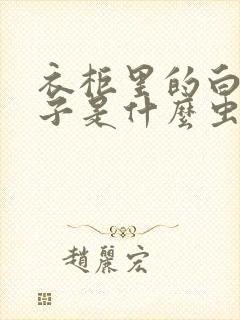 衣柜里的白
子是什麼虫
趙麗宏